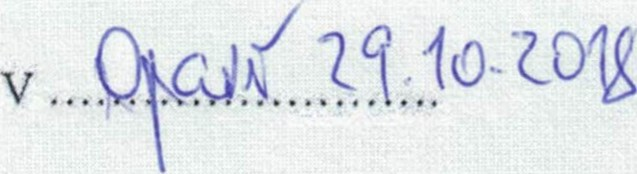 v Opavě 29.10.2018